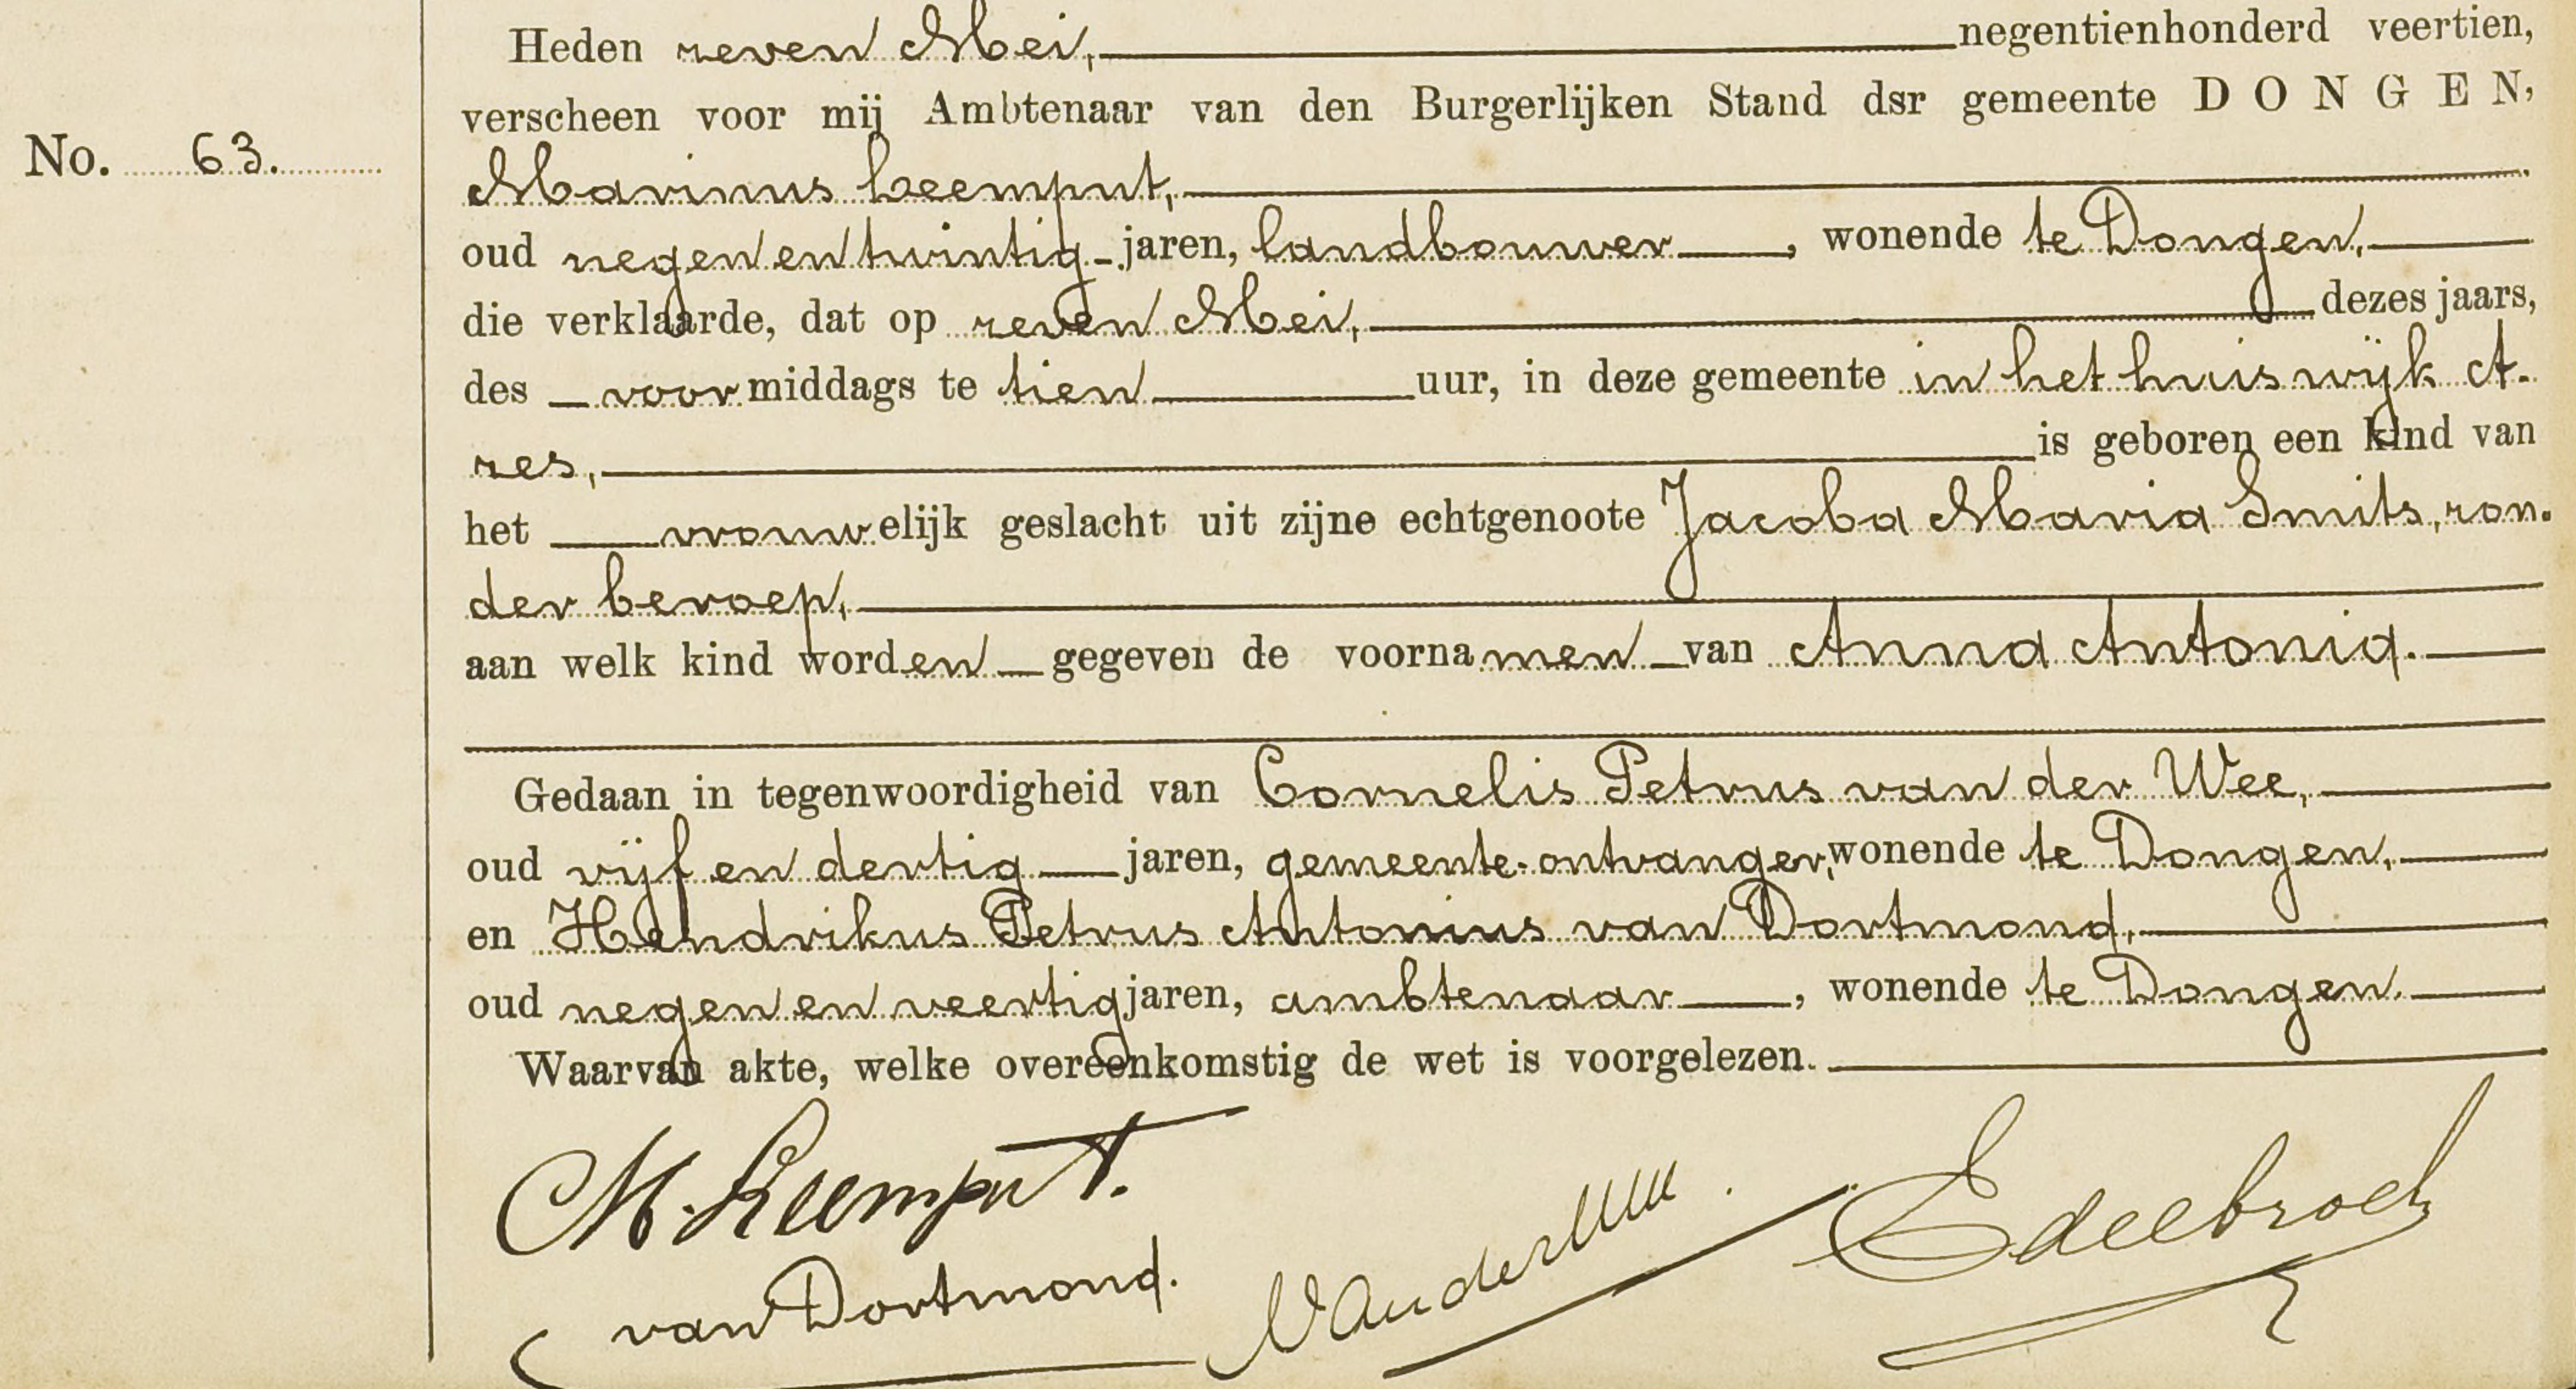 Heden zeven Mei, negentienhonderd veertien,
verscheen voor mij Ambtenaar van den Burgerlijken Stand dsr gemeente DONGEN,
No. 63.
Marinus Leemput,
oud negen en twintig jaren, landbouwer, wonende te Dongen,
die verklaarde, dat op zeven Mei, dezes jaars,
des voormiddags te tien uur, in deze gemeente in het huis wijk A.
zes, is geboren een kind van
het vrouwelijk geslacht uit zijne echtgenoote Jacoba Maria Smits, zon-
der beroep,
aan welk kind worden gegeven de voornamen van Anna Antonia.
Gedaan in tegenwoordigheid van Cornelis Petrus van der Wee,
oud vijf en dertig jaren, gemeente-ontvanger, wonende te Dongen,
en Hendrikus Petrus Antonius van Dortmond,
oud negen en veertig jaren, ambtenaar, wonende te Dongen.
Waarvan akte, welke overeenkomstig de wet is voorgelezen.
M. Leemput.
van Dortmond.